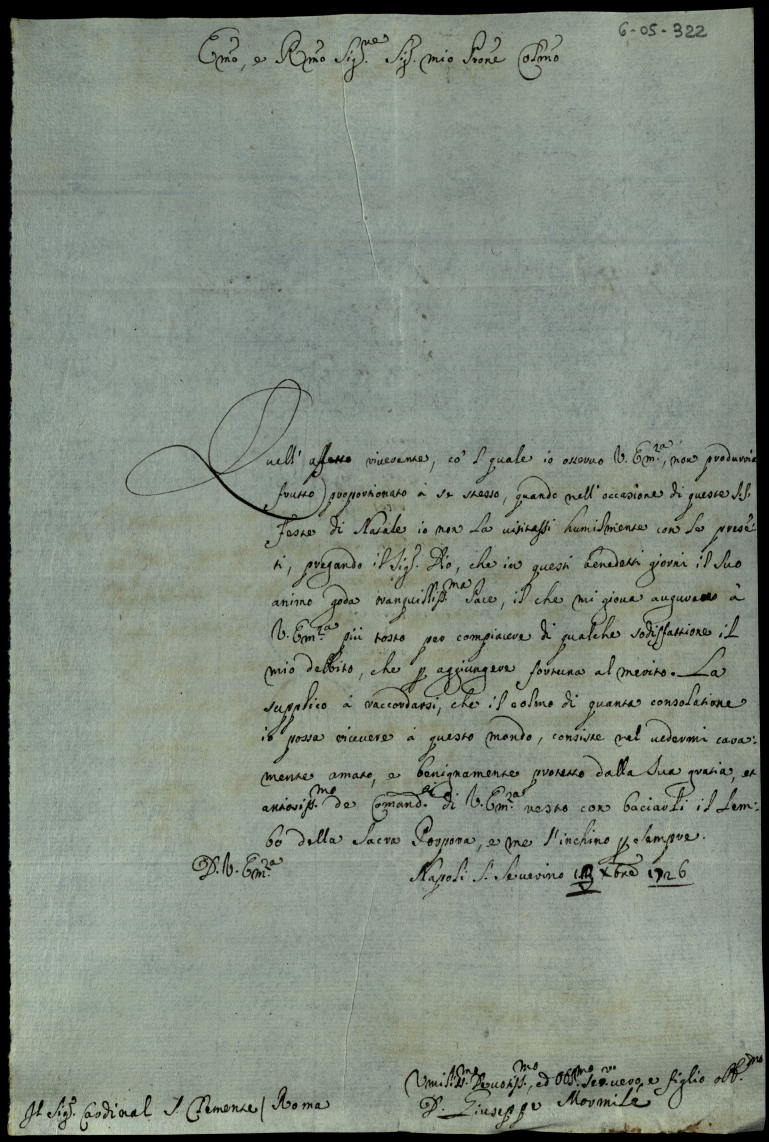 6-05-322
Emo, e Rmo Sig.re Sig. mio Prone Colmo
Quell' affetto riverente, co' l quale io osservo V. Em.za, non produrria
frutto proportionato à se stesso, quando nell' occasione di queste S.S.
Feste di Natale io non la visitassi humilmente con le presē-
ti, pregando il Sig. Dio, che in questi benedetti giorni il suo
animo goda tranquilliss.ma Pace, il che mi giova augurare à
V. Em.za più tosto per compiacere di qualche sodisfattione il
mio debbito, che p aggiungere fortuna al merito. La
supplico à raccordarsi, che il colmo di quanta consolatione
io possa ricevere à questo mondo, consiste nel vedermi cara-
mente amato, e benignamente protetto dalla sua gratia, et
ansiosiss.mo de Comand.ti di V. Em.za resto con baciarli il Lem-
bo della Sacra Porpora, e me l'inchino p sempre.
D. V. Em.za
Napoli S. Severino Xbre 1726
Umiliss.mo Devotiss.mo, ed Obb.mo servo vero, e figlio obb.mo
D. Giuseppe Mormile
Il Sig. Cardinal S. Clemente / Roma